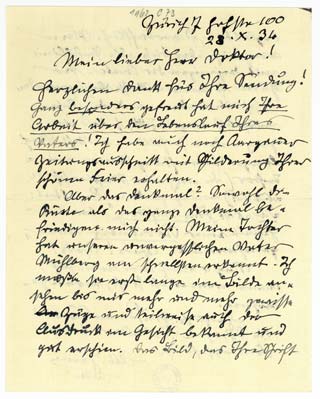 Zürich 7 Hofstr 100
28.X.34
Mein lieber Herr Doktor!
Herzlichen Dank fürs Ihre Sendung!
Ganz besonders gefreut hat mich Ihre
Arbeit über den Lebenslauf Ihres
Vaters! Ich habe auch noch Aargauer
Zeitungsausschnitt mit Schilderung Ihrer
schönen Feier erhalten.
Aber das Denkmal? Sowohl die
Büste als das ganze Denkmal be-
friedigen mich nicht. Meine Tochter
hat unseren unvergesslichen Vater
Mühlberg am schnellsten erkannt. Ich
musste erst lange im Bilde an-
sehen bis mir mehr und mehr gewisse
Züge und teilweise auch der
Ausdruck am Gesicht bekannt und
gut erschien. Das Bild, das Ihre Schrift